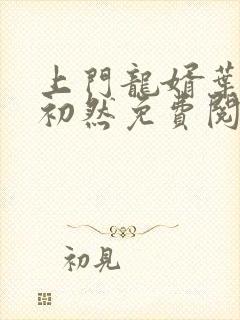 上門龍婿葉
初然免費閱
初見